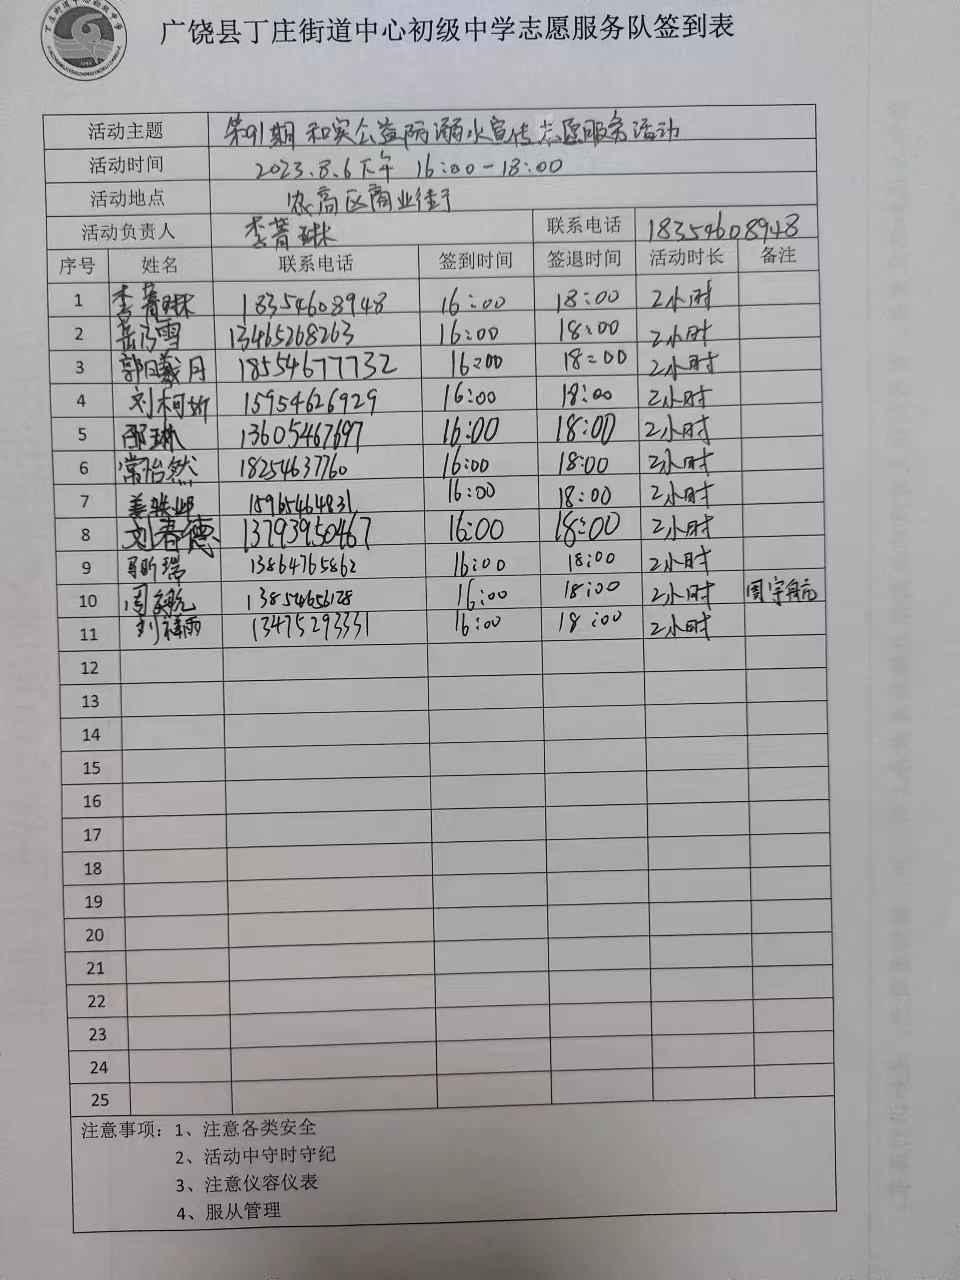 广饶县丁庄街道中心初级中学志愿服务队签到表
活动主题 第91期 和实公益防溺水宣传志愿服务活动
活动时间 2023.8.6下午 16:00-18:00
活动地点 农高区商业街
活动负责人 李菁琳 联系电话 18354608948
序号 姓名 联系电话 签到时间 签退时间 活动时长 备注
1 李菁琳 18354608948 16:00 18:00 2小时
2 岳乃雪 13465268263 16:00 18:00 2小时
3 郭曦月 18554677732 16:00 18:00 2小时
4 刘柯妡 15954626929 16:00 18:00 2小时
5 邵琳 13605467697 16:00 18:00 2小时
6 常怡然 18254637760 16:00 18:00 2小时
7 15965464831 16:00 18:00 2小时
8 刘春德 13793950467 16:00 18:00 2小时
9 13864765862 16:00 18:00 2小时
10 周宇航 13854656128 16:00 18:00 2小时 周宇航
11 刘祥雨 13475293331 16:00 18:00 2小时
12
13
14
15
16
17
18
19
20
21
22
23
24
25
注意事项：1、注意各类安全
2、活动中守时守纪
3、注意仪容仪表
4、服从管理